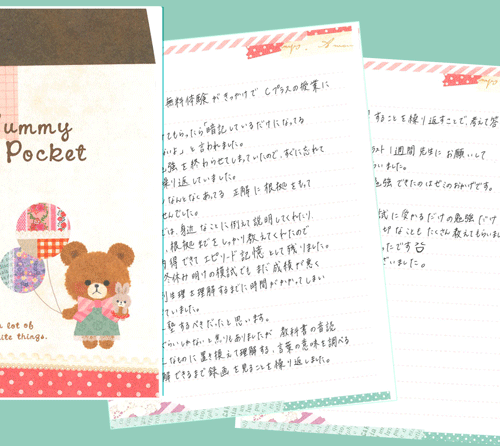 ummy
Pocket
a lot of
ite things.
無料体験がきっかけでCプラスの授業に
てもらったら「暗記しているだけになってる
ないよ」と言われました。
強を終わらせてしまっていたので、すぐに忘れて
繰り返していました。
なんとなくあってる 正解に根拠をもって
せんでした。
では、身近なことに例えて説明してくれたり、
、根拠までをしっかり教えてくれたので
得できてエピソード記憶として残りました。
冬休み明けの模試でもまだ成績が悪く
生理を理解するまでに時間がかかってしまい
ていました。
塾するべきだったと思います。
ぐらいしかないと焦りもありましたが 教科書の音読
なものに置き換えて理解する、言葉の意味を調べる
解できるまで録画を見ることを繰り返しました。
することを繰り返すことで、考えて答
ラスト1週間 先生にお願いして
いました。
勉強できたのはゼミのおかげです。
試に受かるだけの勉強だけ
なこともたくさん教えてもらいま
ったです
ございました。